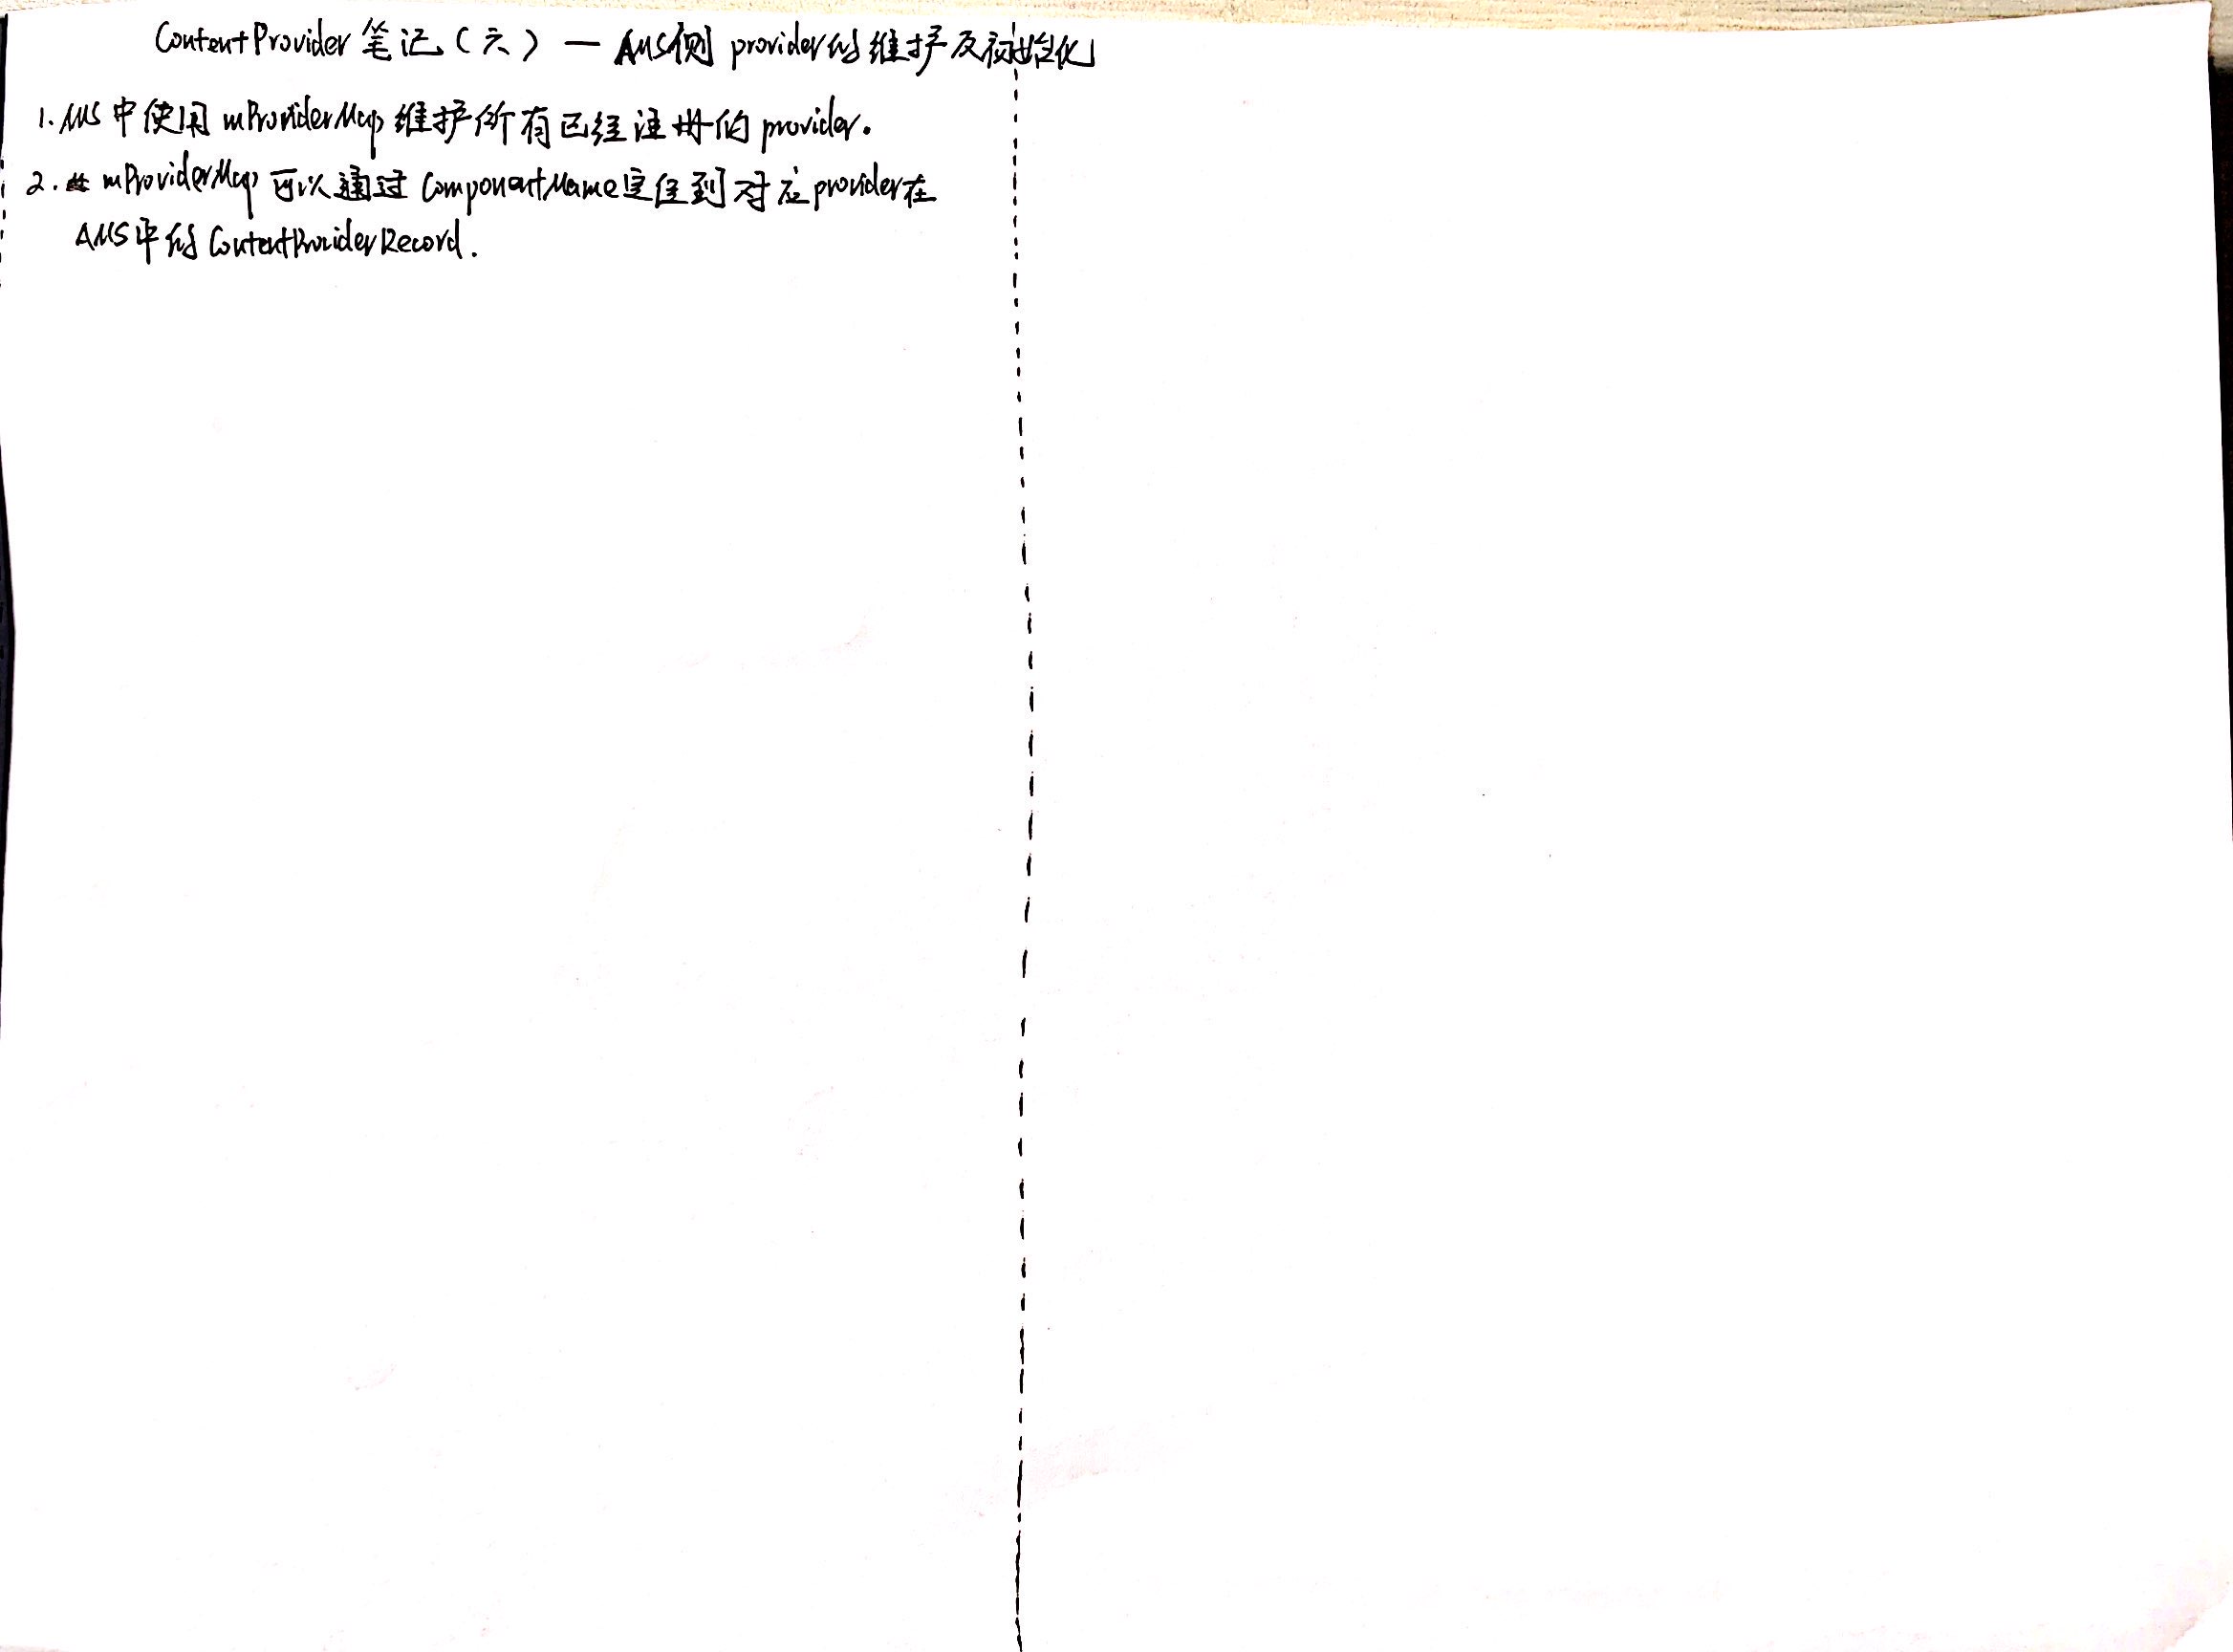 ContentProvider笔记(六)—AMS侧provider的维护及初始化
1.AMS中使用mProviderMap维护所有已经注册的provider.
2.mProviderMap可以通过ComponentName定位到对应provider在
AMS中的ContentProviderRecord.